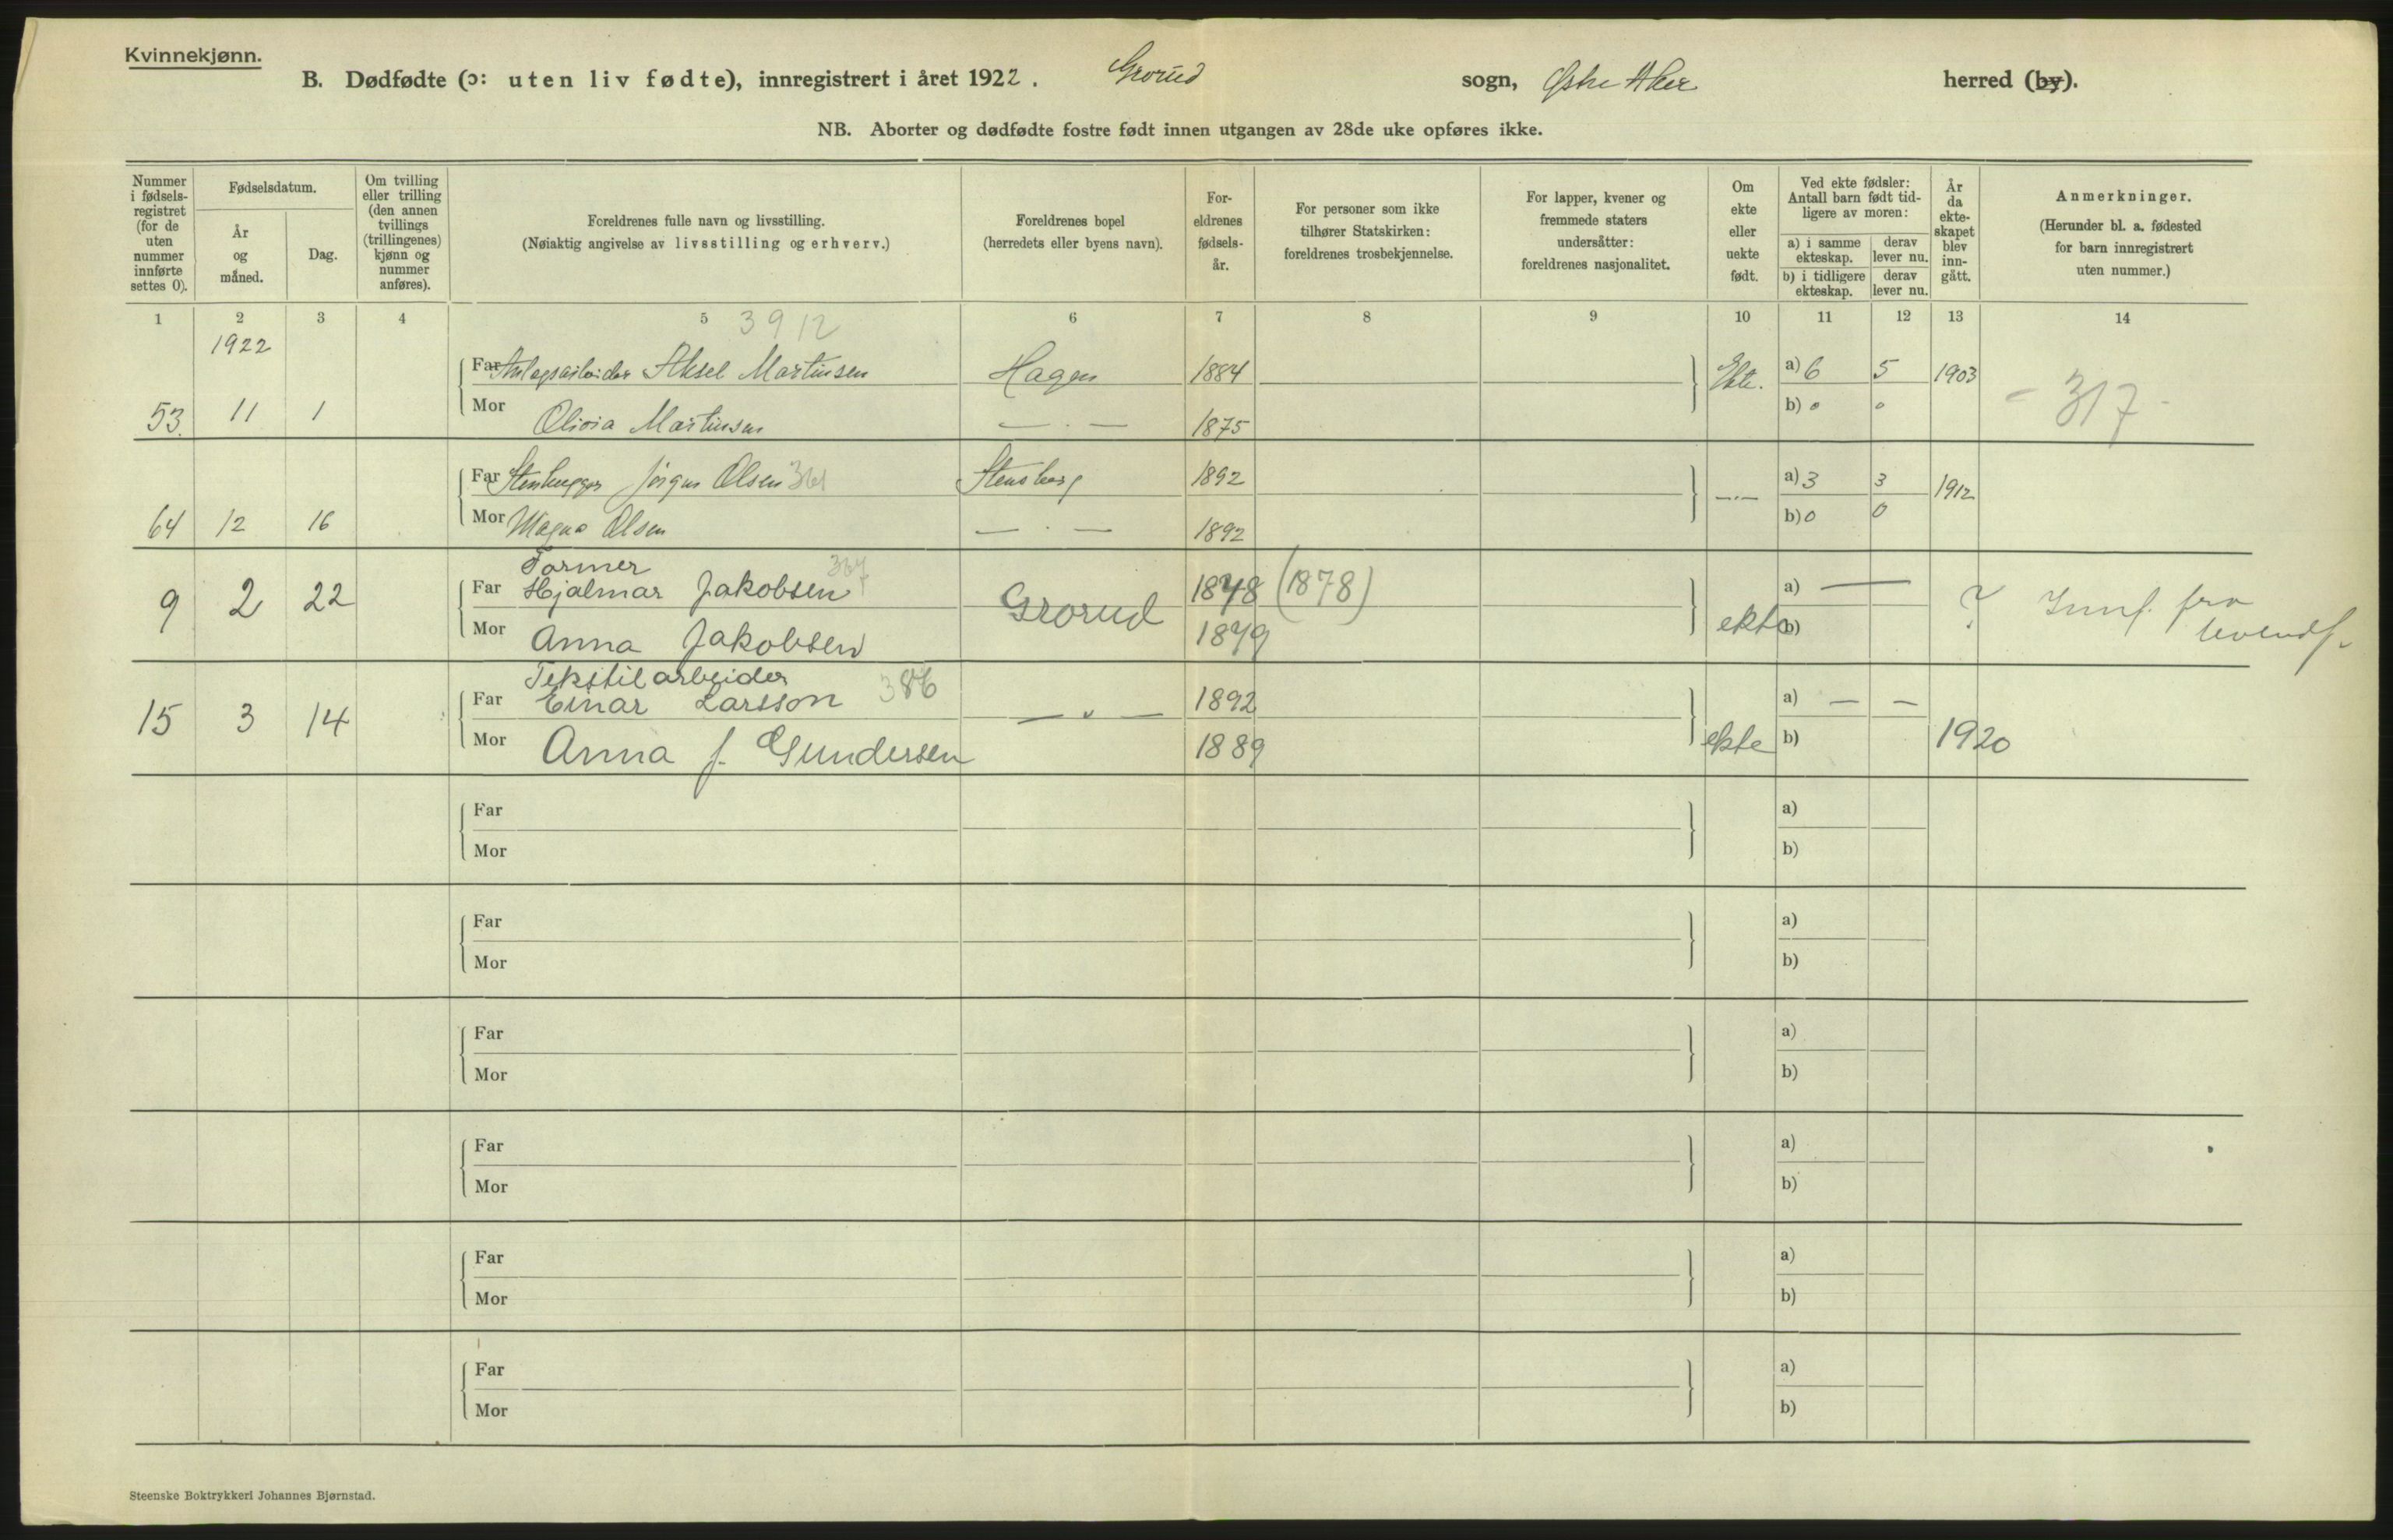 Kvinnekjønn.
B. Dødfødte (ɔ: uten liv fødte), innregistrert i året 1922. Grorud sogn, Østre Aker herred (by).
NB. Aborter og dødfødte fostre født innen utgangen av 28de uke opføres ikke.
Nummer i fødsels-registret (for de uten nummer innførte settes 0).
Fødselsdatum.
År og måned.
Dag.
Om tvilling eller trilling (den annen tvillings (trillingenes) kjønn og nummer anføres).
Foreldrenes fulle navn og livsstilling.
(Nøiaktig angivelse av livsstilling og erhverv.)
Foreldrenes bopel
(herredets eller byens navn).
For-eldrenes fødsels-år.
For personer som ikke tilhører Statskirken: foreldrenes trosbekjennelse.
For lapper, kvener og fremmede staters undersåtter: foreldrenes nasjonalitet.
Om ekte eller uekte født.
Ved ekte fødsler: Antall barn født tid-ligere av moren:
a) i samme ekteskap. derav lever nu.
b) i tidligere ekteskap. derav lever nu.
År da ekte-skapet blev inn-gått.
Anmerkninger.
(Herunder bl. a. fødested for barn innregistrert uten nummer.)
1 2 3 4 5 6 7 8 9 10 11 12 13 14
3912
1922
Far Anlegsarbeider Aksel Martinsen Hagen 1884 Ekte. a) 6 5 1903
53. 11 1 Mor Olivia Martinsen — . — 1875 b) 0 0 - 317 -
Far Stenhugger Jørgen Olsen 361 Stensberg 1892 —"— a) 3 3 1912
64 12 16 Mor Magna Olsen — . — 1892 b) 0 0
Former 367
9 2 22 Far Hjalmar Jakobsen Grorud 1848 (1878) a) — ? Innf. fra levendf.
Mor Anna Jakobsen 1879 ekte b)
Tekstilarbeider
15 3 14 Far Einar Larsson 386 — " — 1892 a) — —
Mor Anna J. Gundersen 1889 ekte b) 1920
Far a)
Mor b)
Far a)
Mor b)
Far a)
Mor b)
Far a)
Mor b)
Far a)
Mor b)
Far a)
Mor b)
Steenske Boktrykkeri Johannes Bjørnstad.